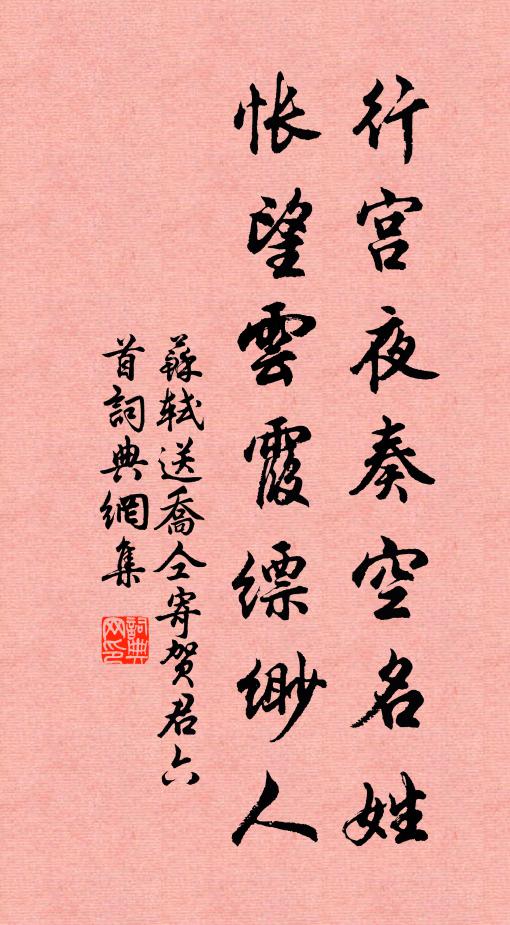 行宮夜奏空名姓
悵望雲霞縹緲人
蘇軾送喬仝寄賀君六
首詞典網集
詞典网印